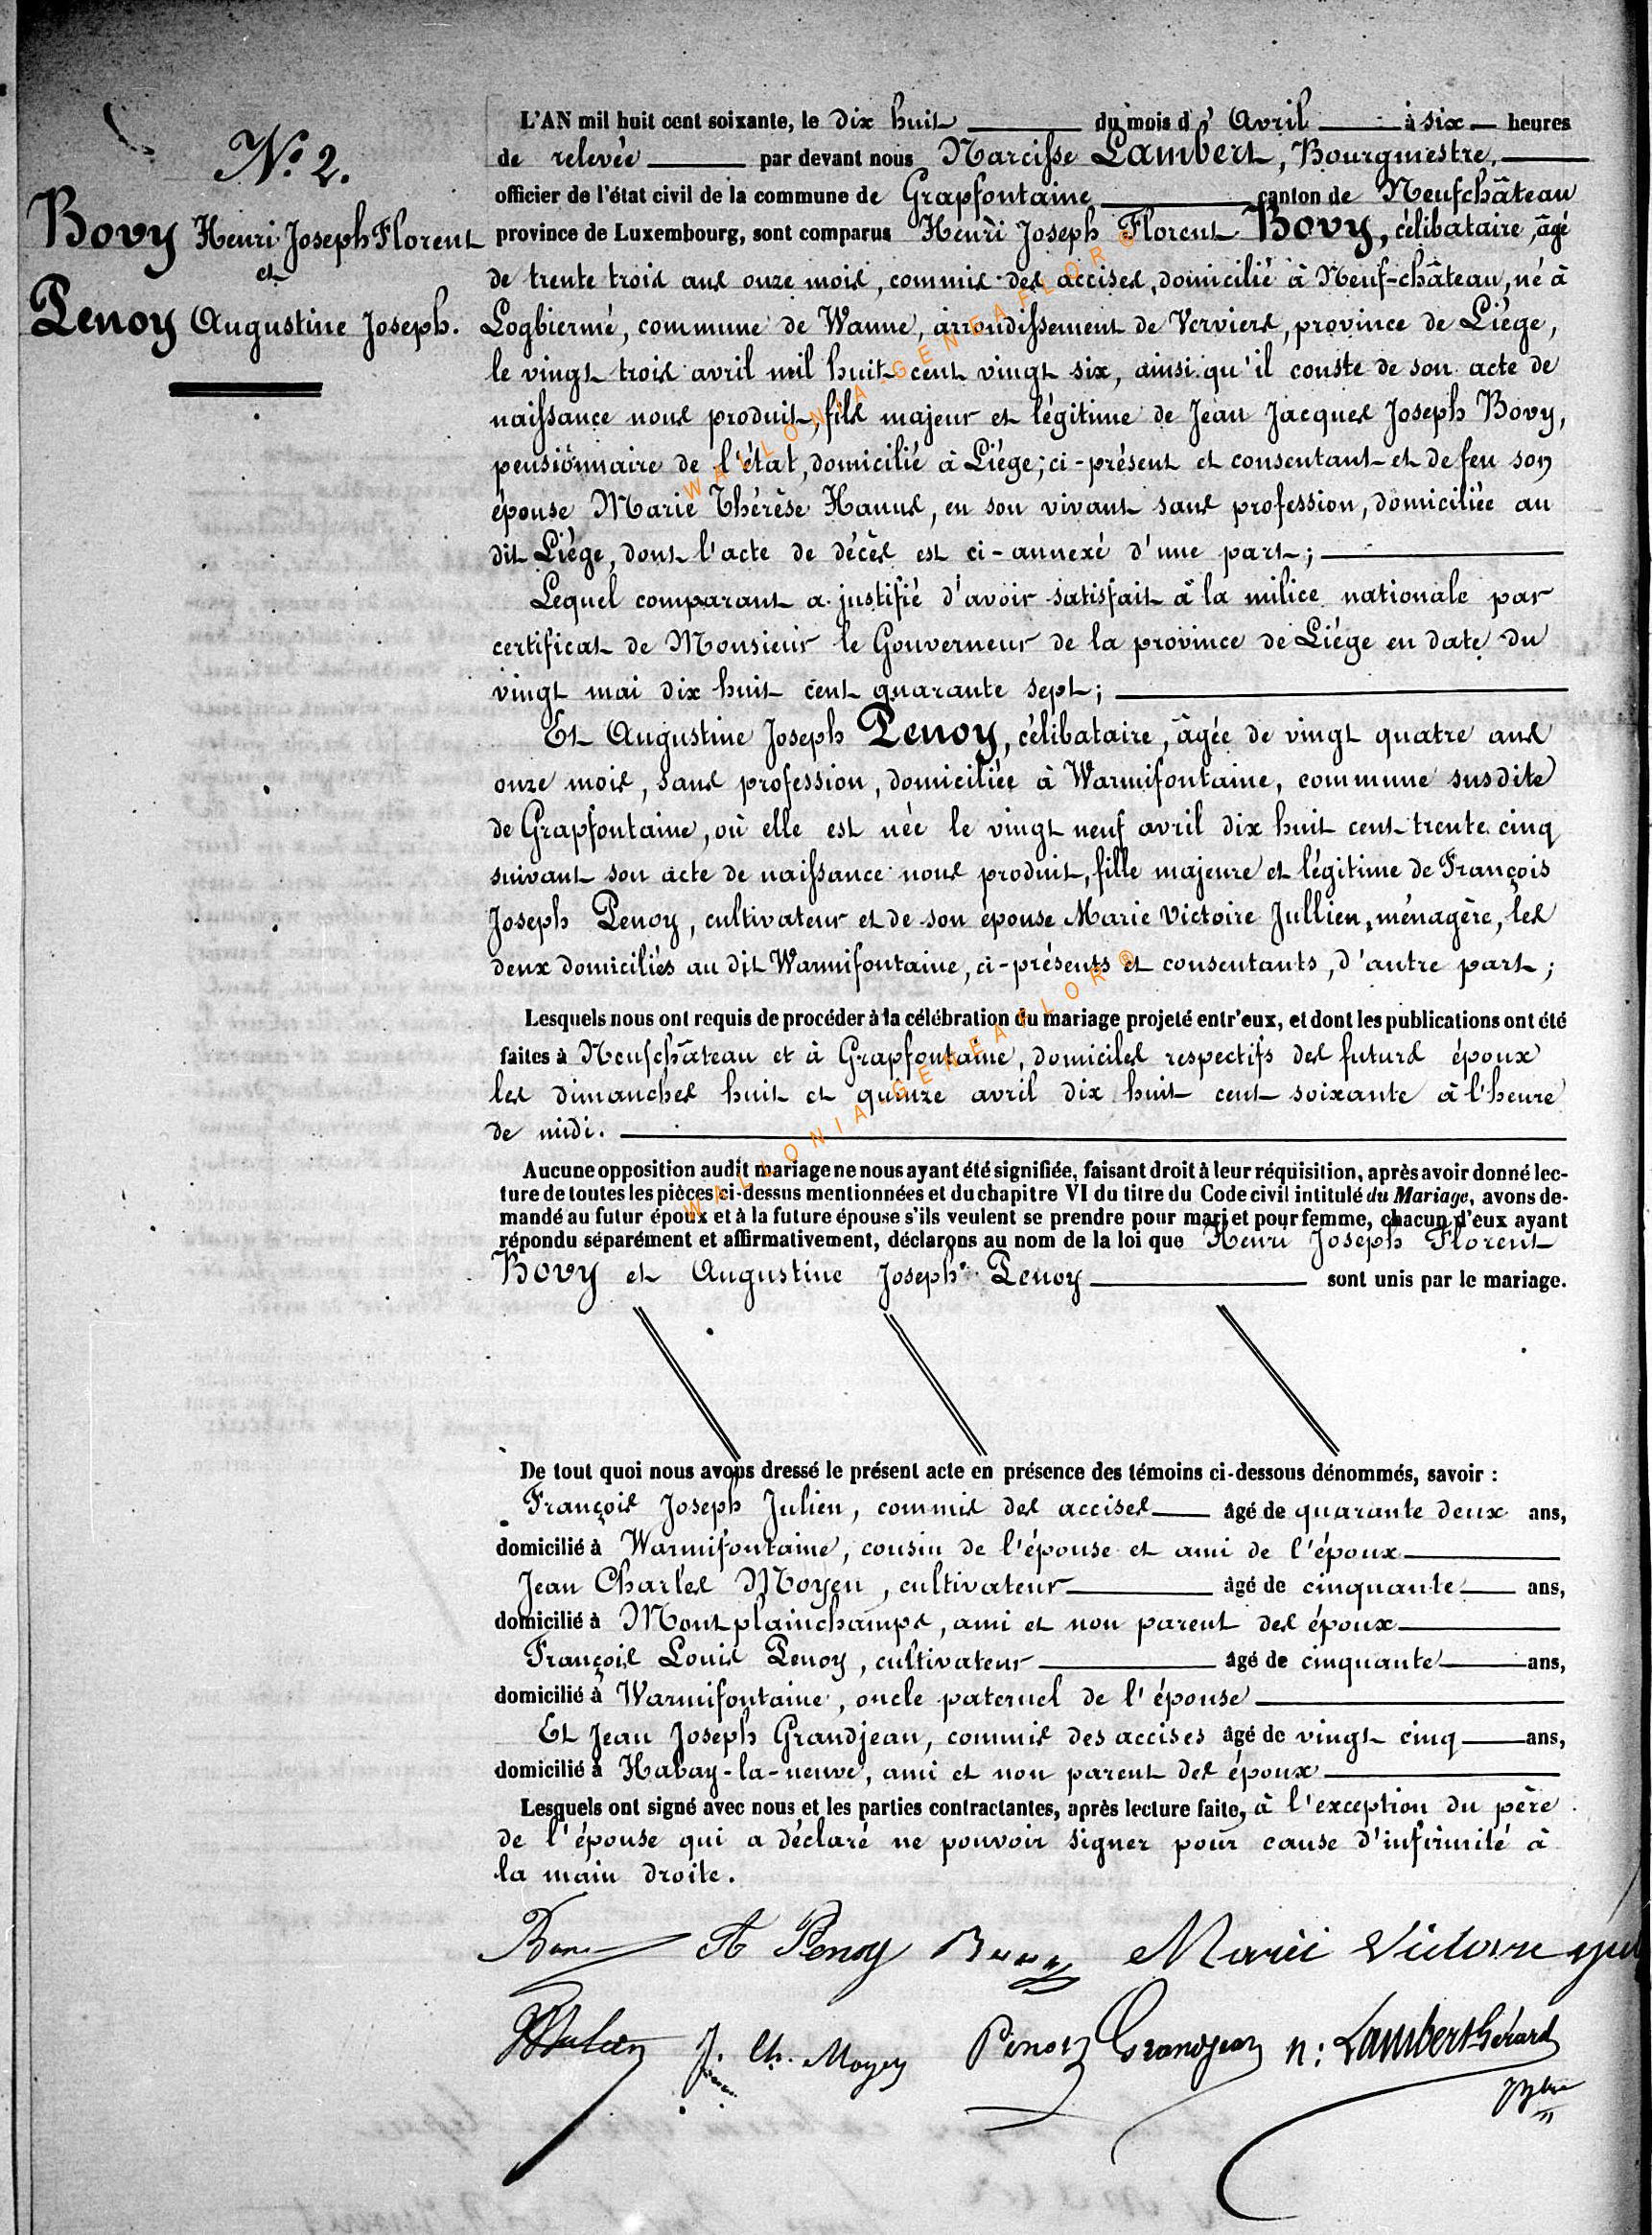 N.° 2.
Bovy Henri Joseph Florent
et
Penoy Augustine Joseph.
L'AN mil huit cent soixante, le dix huit du mois d' Avril à six heures
de relevée par devant nous Narcisse Lambert, Bourgmestre,
officier de l'état civil de la commune de Grapfontaine canton de Neufchâteau
province de Luxembourg, sont comparus Henri Joseph Florent Bovy, célibataire, âgé
de trente trois ans onze mois, commis des accises, domicilié à Neuf-château, né à
Logbiermé, commune de Wanne, arrondissement de Verviers, province de Liége,
le vingt trois avril mil huit cent vingt six, ainsi qu'il conste de son acte de
naissance nous produit, fils majeur et légitime de Jean Jacques Joseph Bovy,
pensionnaire de l'état, domicilié à Liége; ci-présent et consentant et de feu son
épouse Marie Thérèse Hanus, en son vivant sans profession, domiciliée au
dit Liége, dont l'acte de décès est ci-annexé d'une part;
Lequel comparant a justifié d'avoir satisfait à la milice nationale par
certificat de Monsieur le Gouverneur de la province de Liége en date du
vingt mai dix huit cent quarante sept;
Et Augustine Joseph Penoy, célibataire, âgée de vingt quatre ans
onze mois, sans profession, domiciliée à Warmifontaine, commune susdite
de Grapfontaine, où elle est née le vingt neuf avril dix huit cent trente cinq
suivant son acte de naissance nous produit, fille majeure et légitime de François
Joseph Penoy, cultivateur et de son épouse Marie Victoire Jullien, ménagère, les
deux domiciliés au dit Warmifontaine, ci-présents et consentants, d'autre part;
Lesquels nous ont requis de procéder à la célébration du mariage projeté entr'eux, et dont les publications ont été
faites à Neufchâteau et à Grapfontaine, domiciles respectifs des futurs époux
les dimanches huit et quinze avril dix huit cent soixante à l'heure
de midi.
Aucune opposition audit mariage ne nous ayant été signifiée, faisant droit à leur réquisition, après avoir donné lec-
ture de toutes les pièces ci-dessus mentionnées et du chapitre VI du titre du Code civil intitulé du Mariage, avons de-
mandé au futur époux et à la future épouse s'ils veulent se prendre pour mari et pour femme, chacun d'eux ayant
répondu séparément et affirmativement, déclarons au nom de la loi que Henri Joseph Florent
Bovy et Augustine Joseph Penoy sont unis par le mariage.
De tout quoi nous avons dressé le présent acte en présence des témoins ci-dessous dénommés, savoir :
François Joseph Julien, commis des accises âgé de quarante deux ans,
domicilié à Warmifontaine, cousin de l'épouse et ami de l'époux
Jean Charles Moyen, cultivateur âgé de cinquante ans,
domicilié à Montplainchamps, ami et non parent des époux
François Louis Penoy, cultivateur âgé de cinquante ans,
domicilié à Warmifontaine, oncle paternel de l'épouse
Et Jean Joseph Grandjean, commis des accises âgé de vingt cinq ans,
domicilié à Habay-la-neuve, ami et non parent des époux
Lesquels ont signé avec nous et les parties contractantes, après lecture faite, à l'exception du père
de l'épouse qui a déclaré ne pouvoir signer pour cause d'infirmité à
la main droite.
A Penoy Marie Victoire
J. Ch. Moyen Penoy Grandjean n: Lambert Gérard
WALLONIA-GENEAFLOR®
WALLONIA-GENEAFLOR®